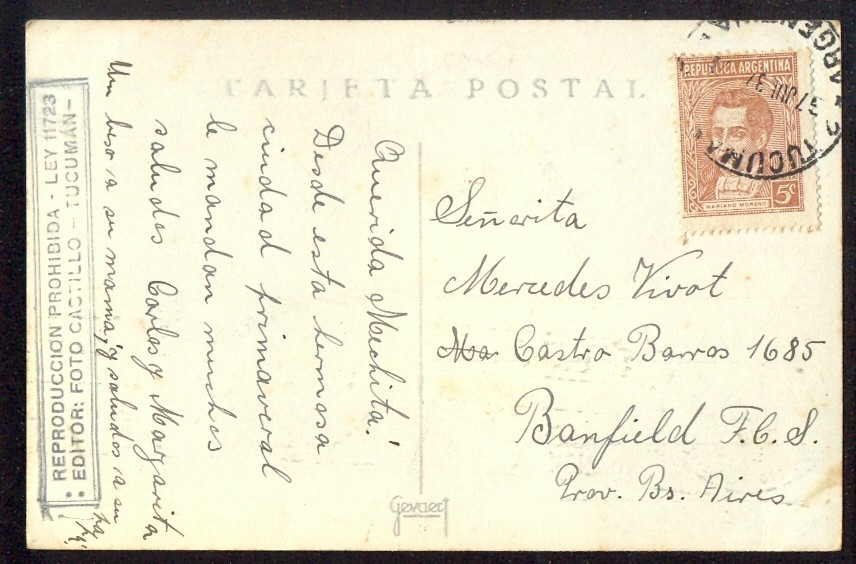 TARJETA POSTAL
REPUBLICA ARGENTINA
MARIANO MORENO
5c
ARGENTINA
JUL 37
TUCUMA
Querida Mechita!
Desde esta hermosa
ciudad primaveral
le mandan muchos
saludos Carlos y Margarita
Un beso a su mamá, y saludos a su
REPRODUCCION PROHIBIDA - LEY 11723
EDITOR: FOTO CASTILLO - TUCUMÁN-
Señorita
Mercedes Vivot
Castro Barros 1685
Banfield F.C.S.
Prov. Bs. Aires
Gevaert